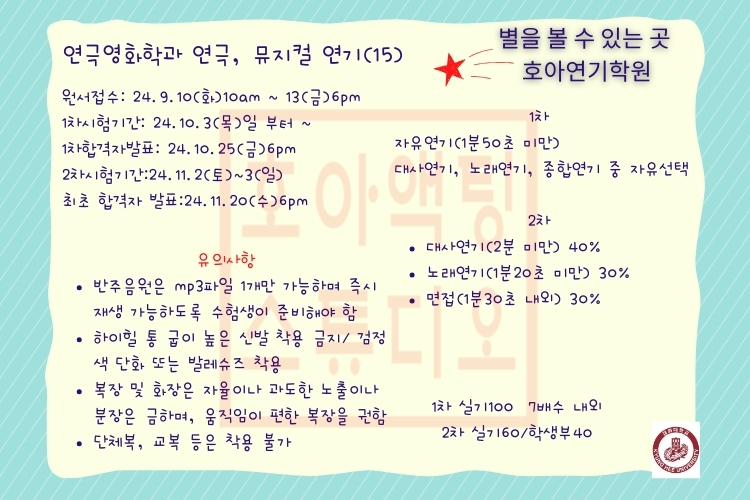 연극영화학과 연극, 뮤지컬 연기(15)
별을 볼 수 있는 곳
호아연기학원
원서접수: 24.9.10(화)10am ~ 13(금)6pm
1차시험기간: 24.10.3(목)일 부터 ~
1차합격자발표: 24.10.25(금)6pm
2차시험기간:24.11.2(토)~3(일)
최초 합격자 발표:24.11.20(수)6pm
1차
자유연기(1분50초 미만)
대사연기, 노래연기, 종합연기 중 자유선택
2차
• 대사연기(2분 미만) 40%
• 노래연기(1분20초 미만) 30%
• 면접(1분30초 내외) 30%
유의사항
• 반주음원은 mp3파일 1개만 가능하며 즉시
재생 가능하도록 수험생이 준비해야 함
• 하이힐 통 굽이 높은 신발 착용 금지/ 검정
색 단화 또는 발레슈즈 착용
• 복장 및 화장은 자율이나 과도한 노출이나
분장은 금하며, 움직임이 편한 복장을 권함
• 단체복, 교복 등은 착용 불가
1차 실기100 7배수 내외
2차 실기60/학생부40
호아액팅
스튜디오
KYUNG HEE UNIVERSITY